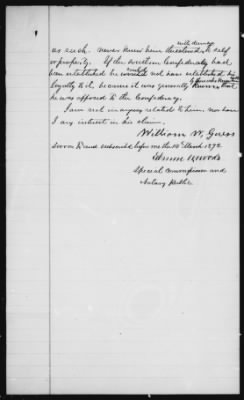 with damage
as such. never knew him threatened to self
or property. If the southern Confederacy had
been established he could not have established his
loyalty to it, because it was generally known that
he was opposed to the Confederacy.
I am not in any way related to him, nor have
I any interest in his claim.
William W,
Sworn to and subscribed before me this 14 March 1872
Woods
Special Commissioner and
Notary Public